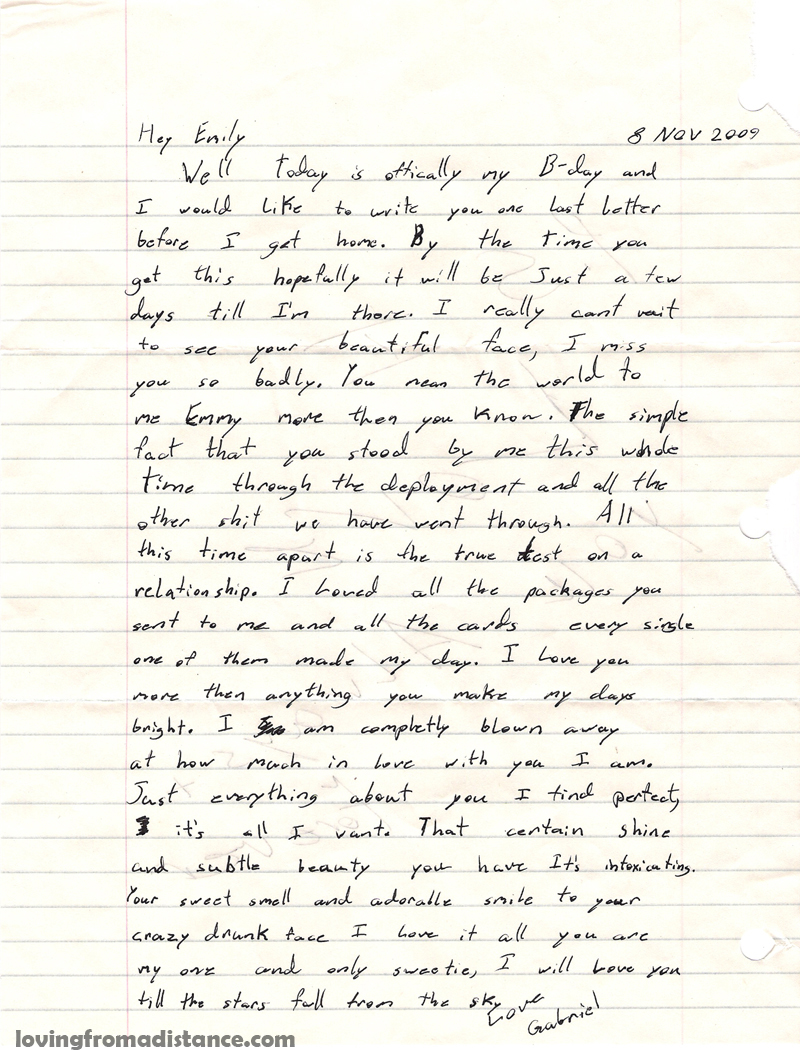 Hey Emily 8 NOV 2009
Well Today is offically my B-day and
I would like to write you one last letter
before I get home. By the time you
get this hopefully it will be Just a few
days till I'm there. I really cant wait
to see your beautiful face, I miss
you so badly. You mean the world to
me Emmy more then you know. The simple
fact that you stood by me this whole
time through the deployment and all the
other shit we have went through. All
this time apart is the true test on a
relationship. I Loved all the packages you
sent to me and all the cards every single
one of them made my day. I Love you
more then anything you make my days
bright. I am completly blown away
at how much in love with you I am.
Just everything about you I find perfect,
it's all I want. That certain shine
and subtle beauty you have It's intoxicating.
Your sweet smell and adorable smile to your
crazy drunk face I Love it all you are
my one and only sweetie, I will Love you
till the stars fall from the sky
Love
Gabriel
lovingfromadistance.com